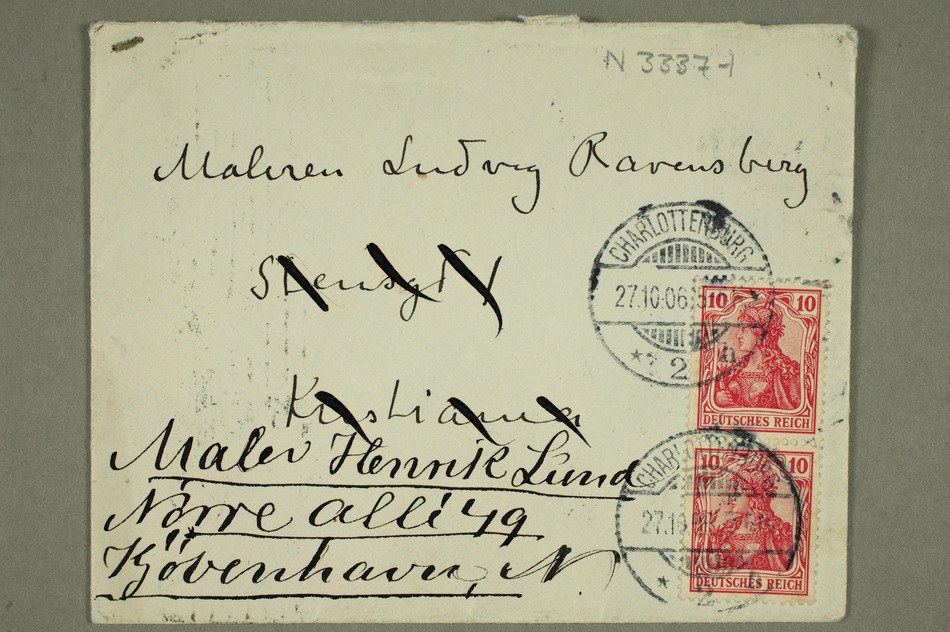 N 3337-1
Maleren Ludvig Ravensberg
Stensgt 1
Kristiania
Maler Henrik Lund
Nørre allé 49
Kjøbenhavn, N
CHARLOTTENBURG
27.10.06
* 2 h
10 10
DEUTSCHES REICH
CHARLOTTENBURG
27.1
* 2 b
10 10
DEUTSCHES REICH